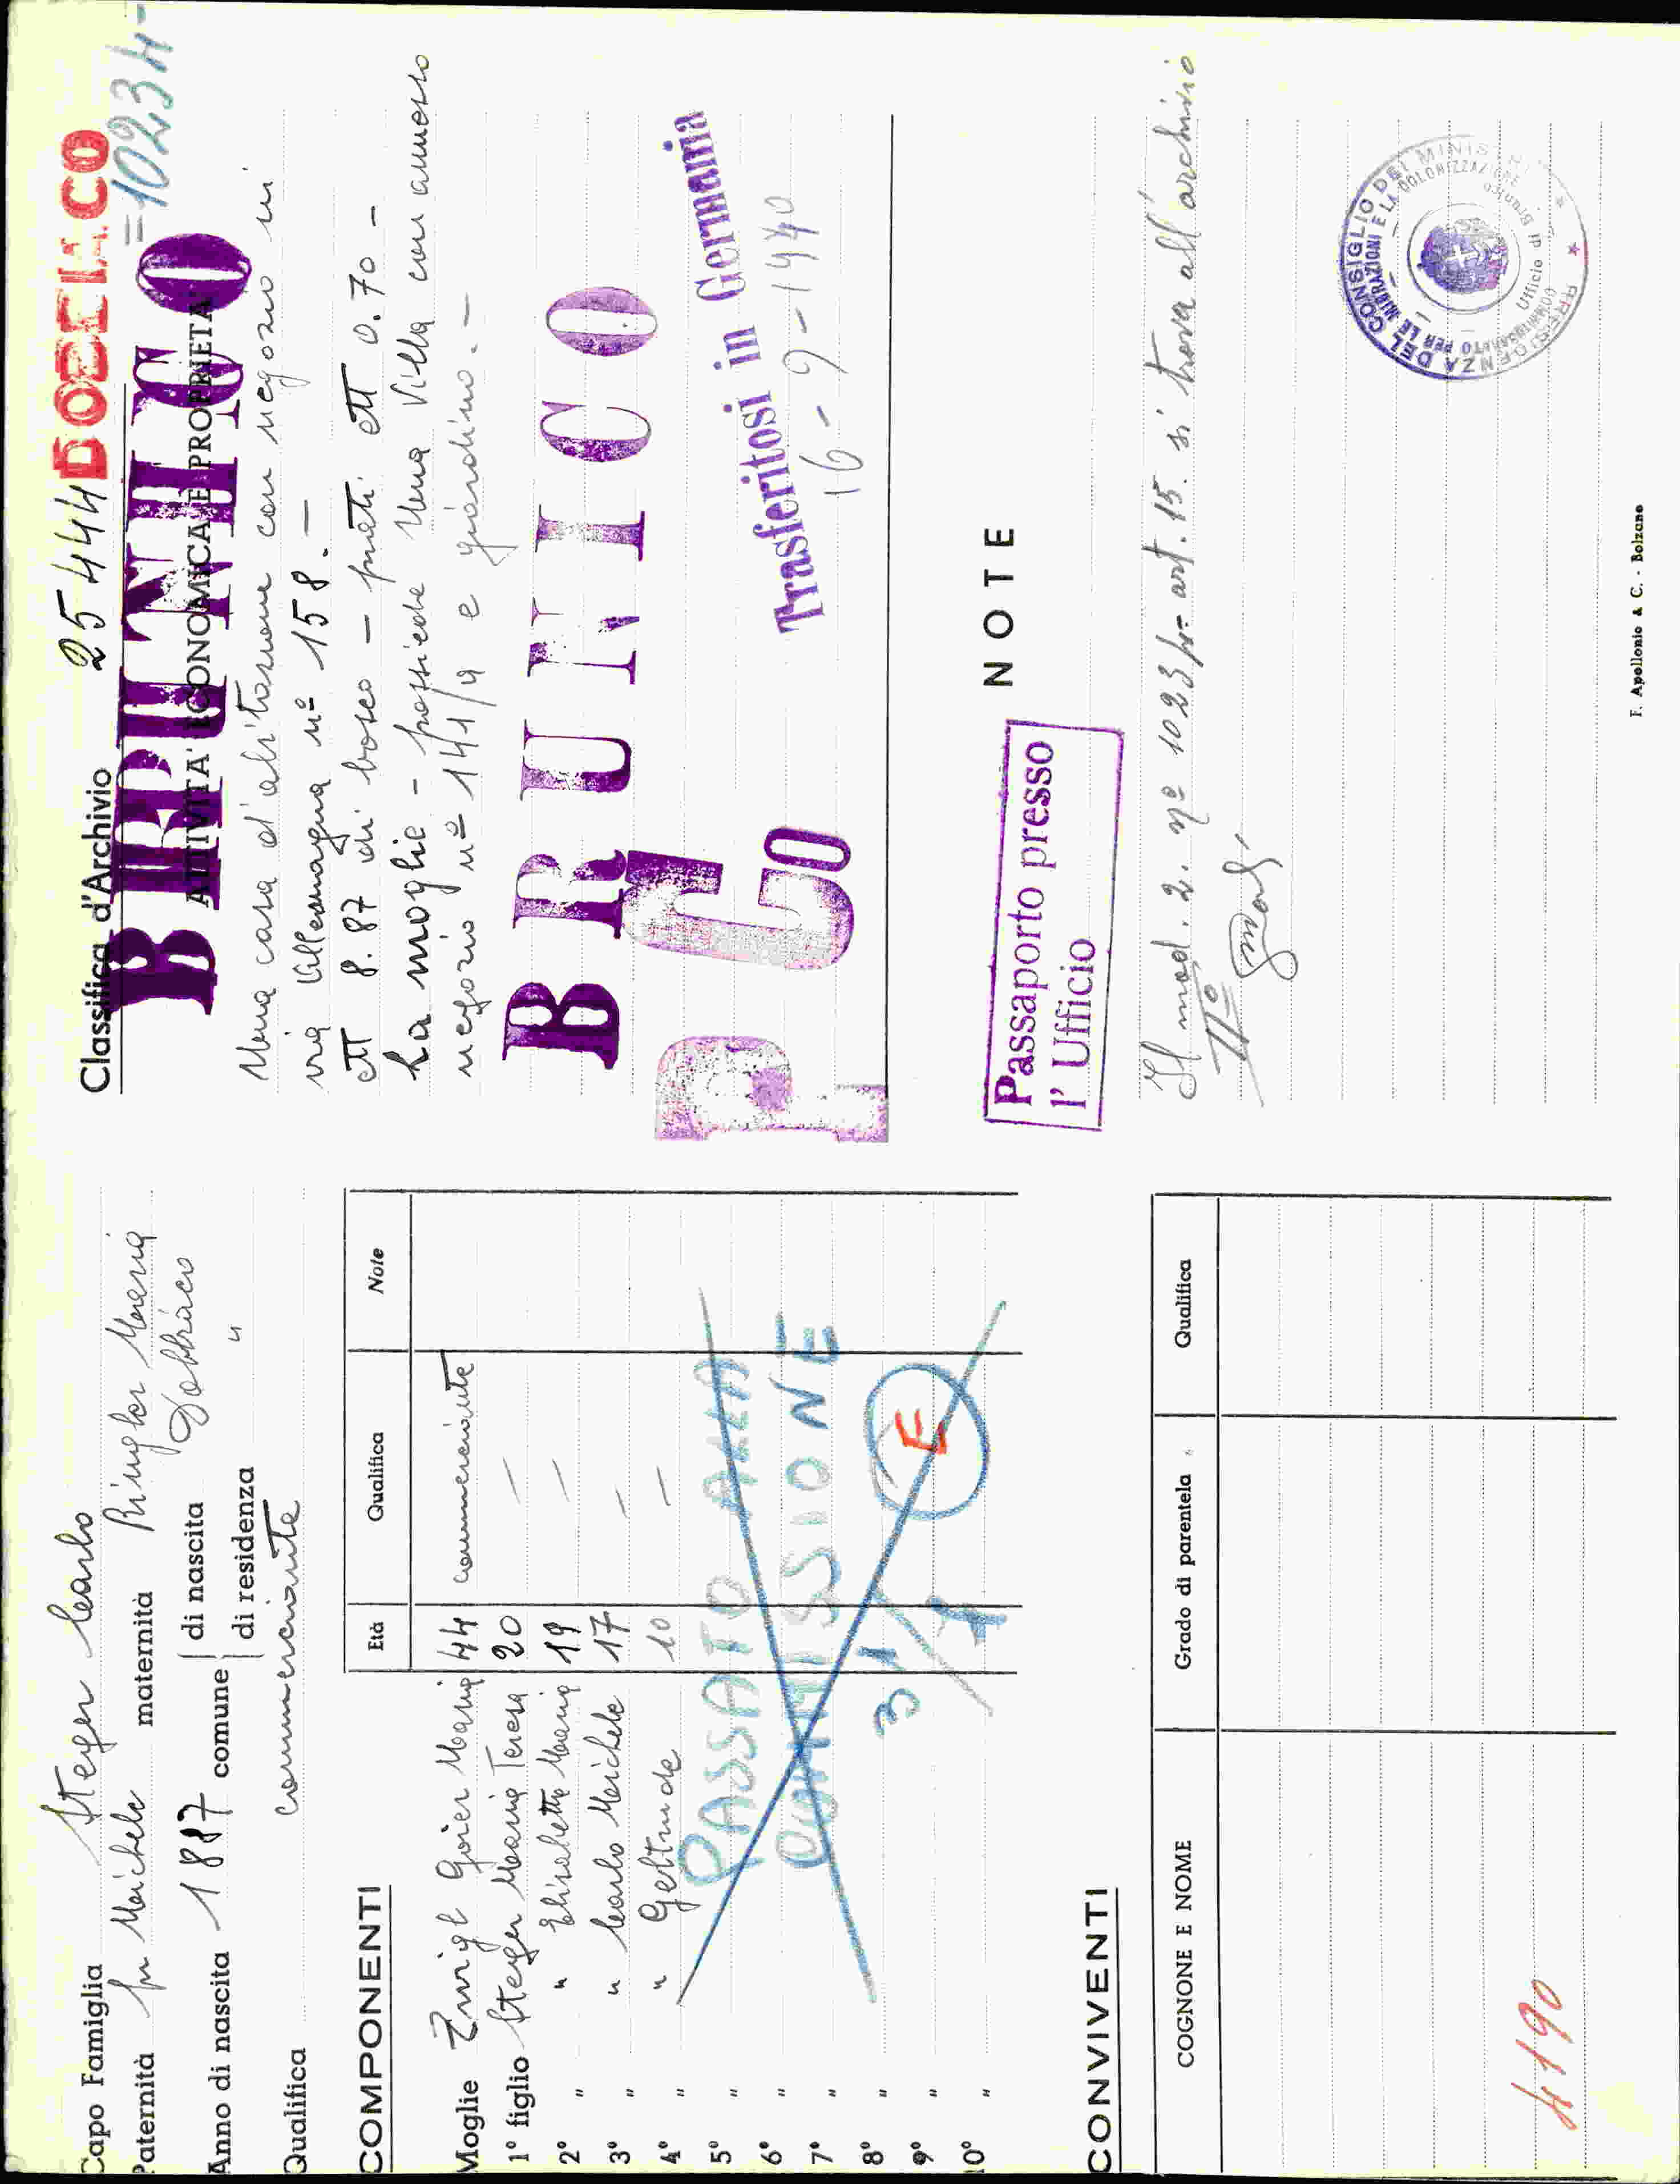 Capo Famiglia Steger Carlo
Paternità fu Michele maternità Ringler Maria
Anno di nascita 1887 comune di nascita Dobbiaco
di residenza "
Qualifica commerciante
COMPONENTI
Età Qualifica Note
Moglie Goier Maria 44 commerciante
1° figlio Steger Maria Teresa 20 —
2° " " Elisabetta Maria 19 —
3° " " Carlo Michele 17 —
4° " " Geltrude 10 —
5° "
6° "
7° "
8° "
9° "
10° "
PASSATO ALLA
COMMISSIONE
31
E
CONVIVENTI
COGNONE E NOME Grado di parentela Qualifica
4190
Classifica d'Archivio 25444 DOBBIACO
=10234-
BRUNICO
ATTIVITA' ECONOMICA E PROPRIETA'
Una casa d'abitazione con negozio in
via Allemagna n° 158. —
ett 8.87 di bosco — prati ett 0.70 —
La moglie - possiede una Villa con annesso
negozio n° 141/a e giardino. —
BRUNICO
Trasferitosi in Germania
16-9-1940
NOTE
Passaporto presso
l' Ufficio
Il mod. 2. n° 1023 pr= art. 15. si trova all'archivio
PRESIDENZA DEL CONSIGLIO DEI MINISTRI
COMMISSARIATO PER LE MIGRAZIONI E LA COLONIZZAZIONE
Ufficio di Brunico
F. Apollonio & C. - Bolzano